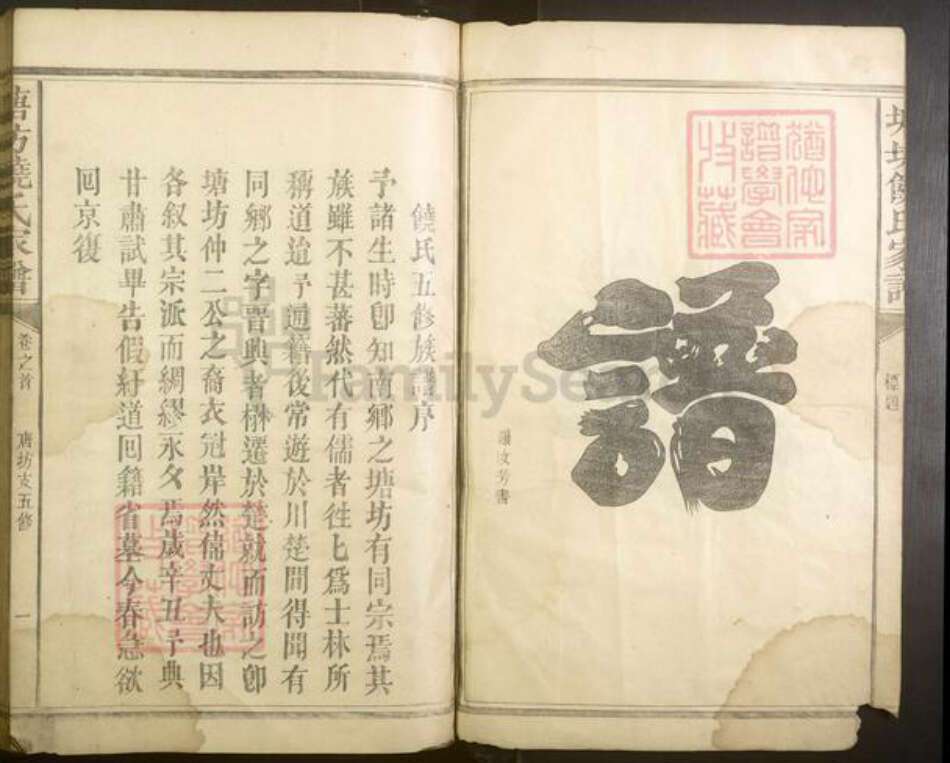 塘坊饒氏家譜
標題
譜
饒氏五修族譜序
予諸生時卽知南鄉之塘坊有同宗焉其
族雖不甚蕃然代有儒者徃匕爲士林所
稱道迨予通籍後常遊於川楚間得聞有
同鄉之字晋興者楙遷於楚就而訪之卽
塘坊仲二公之裔衣冠岸然儒丈夫也因
各叙其宗派而綢繆永夂焉歲辛丑予典
甘肅試畢告假紆道回籍省墓今春急欲
回京復
塘坊饒氏家譜
卷之首
唐坊支五修
一
譜學會
收藏
FamilySearch